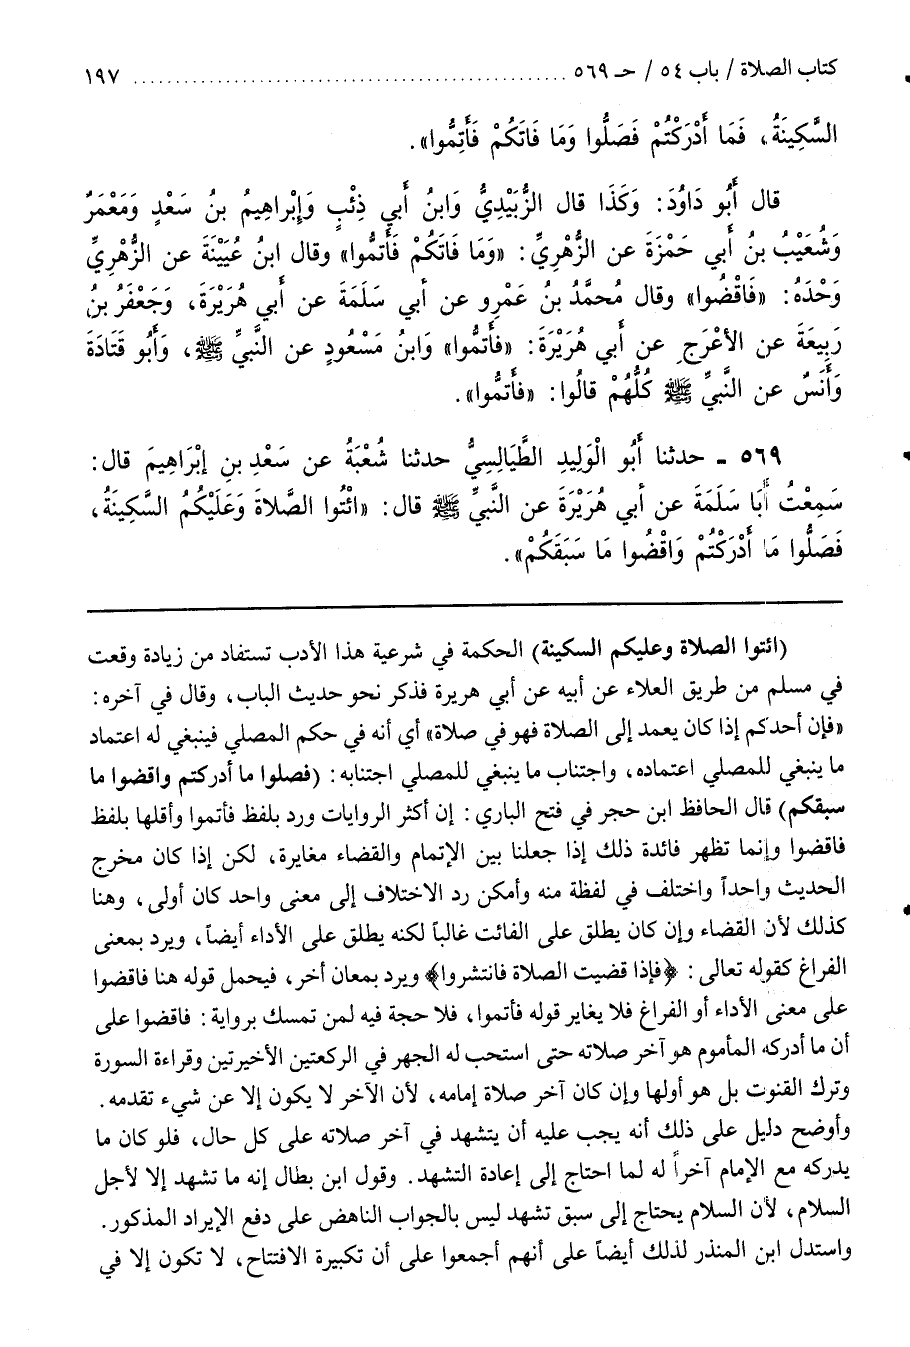 كتاب الصلاة / باب ٥٤ / حـ ٥٦٩ ............................................................ ١٩٧
السَّكِينَةُ، فَمَا أَدْرَكْتُمْ فَصَلُّوا وَمَا فَاتَكُمْ فَأَتِمُّوا».
قال أَبُو دَاوُدَ: وَكَذَا قال الزُّبَيْدِيُّ وَابنُ أَبي ذِئْبٍ وَإِبْراهِيمُ بنُ سَعْدٍ وَمَعْمَرٌ
وَشُعَيْبُ بنُ أَبي حَمْزَةَ عن الزُّهْرِيِّ: «وَمَا فَاتَكُمْ فَأَتمُّوا» وقال ابنُ عُيَيْنَةَ عن الزُّهْرِيِّ
وَحْدَهُ: «فَاقْضُوا» وقال مُحمَّدُ بنُ عَمْرٍو عن أبي سَلَمَةَ عن أَبي هُرَيْرَةَ، وَجَعْفَرُ بنُ
رَبِيعَةَ عن الأعْرَجِ عن أَبي هُرَيْرَةَ: «فأتمُّوا» وَابنُ مَسْعُودٍ عن النَّبيِّ ﷺ، وَأَبُو قَتَادَةَ
وَأَنَسٌ عن النَّبيِّ ﷺ كُلُّهُمْ قالُوا: «فأَتمُّوا».
٥٦٩ ـ حدثنا أَبُو الْوَلِيدِ الطَّيَالِسِيُّ حدثنا شُعْبَةُ عن سَعْدِ بنِ إبْرَاهِيمَ قال:
سَمِعْتُ أَبَا سَلَمَةَ عن أبي هُرَيْرَةَ عن النَّبيِّ ﷺ قال: «ائْتُوا الصَّلاةَ وَعَلَيْكُمُ السَّكِينَةُ،
فَصَلُّوا مَا أَدْرَكْتُمْ وَاقْضُوا مَا سَبَقَكُمْ».
(ائتوا الصلاة وعليكم السكينة) الحكمة في شرعية هذا الأدب تستفاد من زيادة وقعت
في مسلم من طريق العلاء عن أبيه عن أبي هريرة فذكر نحو حديث الباب، وقال في آخره:
«فإن أحدكم إذا كان يعمد إلى الصلاة فهو في صلاة» أي أنه في حكم المصلي فينبغي له اعتماد
ما ينبغي للمصلي اعتماده، واجتناب ما ينبغي للمصلي اجتنابه: (فصلوا ما أدركتم واقضوا ما
سبقكم) قال الحافظ ابن حجر في فتح الباري: إن أكثر الروايات ورد بلفظ فأتموا وأقلها بلفظ
فاقضوا وإنما تظهر فائدة ذلك إذا جعلنا بين الإتمام والقضاء مغايرة، لكن إذا كان مخرج
الحديث واحداً واختلف في لفظة منه وأمكن رد الاختلاف إلى معنى واحد كان أولى، وهنا
كذلك لأن القضاء وإن كان يطلق على الفائت غالباً لكنه يطلق على الأداء أيضاً، ويرد بمعنى
الفراغ كقوله تعالى: ﴿فإذا قضيت الصلاة فانتشروا﴾ ويرد بمعان أخر، فيحمل قوله هنا فاقضوا
على معنى الأداء أو الفراغ فلا يغاير قوله فأتموا، فلا حجة فيه لمن تمسك برواية: فاقضوا على
أن ما أدركه المأموم هو آخر صلاته حتى استحب له الجهر في الركعتين الأخيرتين وقراءة السورة
وترك القنوت بل هو أولها وإن كان آخر صلاة إمامه، لأن الآخر لا يكون إلا عن شيء تقدمه.
وأوضح دليل على ذلك أنه يجب عليه أن يتشهد في آخر صلاته على كل حال، فلو كان ما
يدركه مع الإمام آخراً له لما احتاج إلى إعادة التشهد. وقول ابن بطال إنه ما تشهد إلا لأجل
السلام، لأن السلام يحتاج إلى سبق تشهد ليس بالجواب الناهض على دفع الإيراد المذكور.
واستدل ابن المنذر لذلك أيضاً على أنهم أجمعوا على أن تكبيرة الافتتاح، لا تكون إلا في